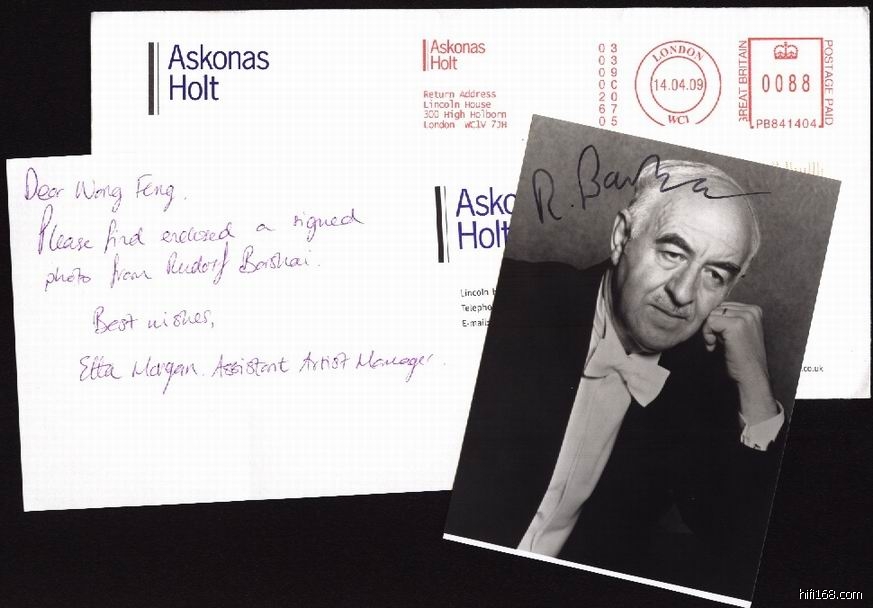 Askonas
Holt
Askonas
Holt
Return Address
Lincoln House
300 High Holborn
London WC1V 7JH
03
03
09
00
20
67
05
LONDON
14.04.09
WC1
GREAT BRITAIN
0088
POSTAGE PAID
PB841404
Dear Wang Feng.
Please find enclosed a signed
photo from Rudolf Barshai.
Best wishes,
Etta Morgan. Assistant Artist Manager.
Asko
Holt
Lincoln
Telepho
E-mail:
.co.uk
R. Barshai
hifi168.com